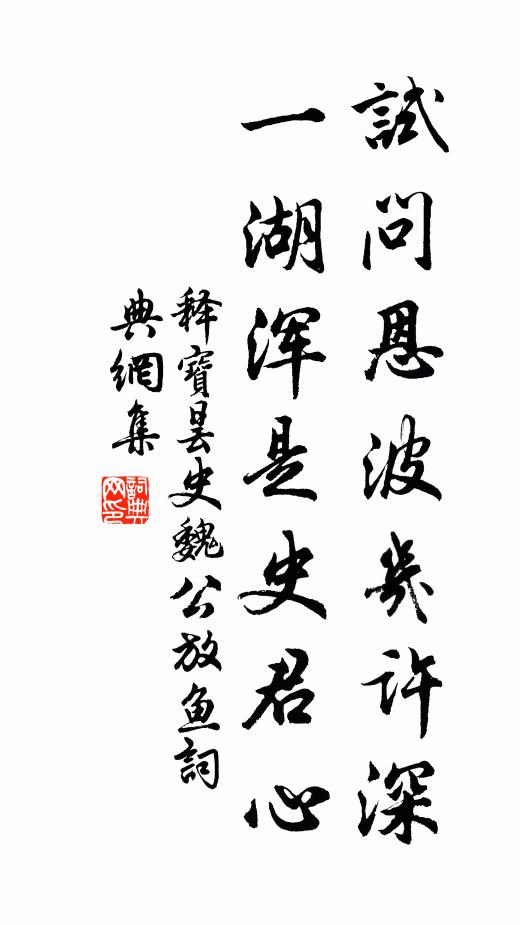 試問恩波幾許深
一湖浑是史君心
释寶昙史魏公放鱼詞
典網集
詞典网印